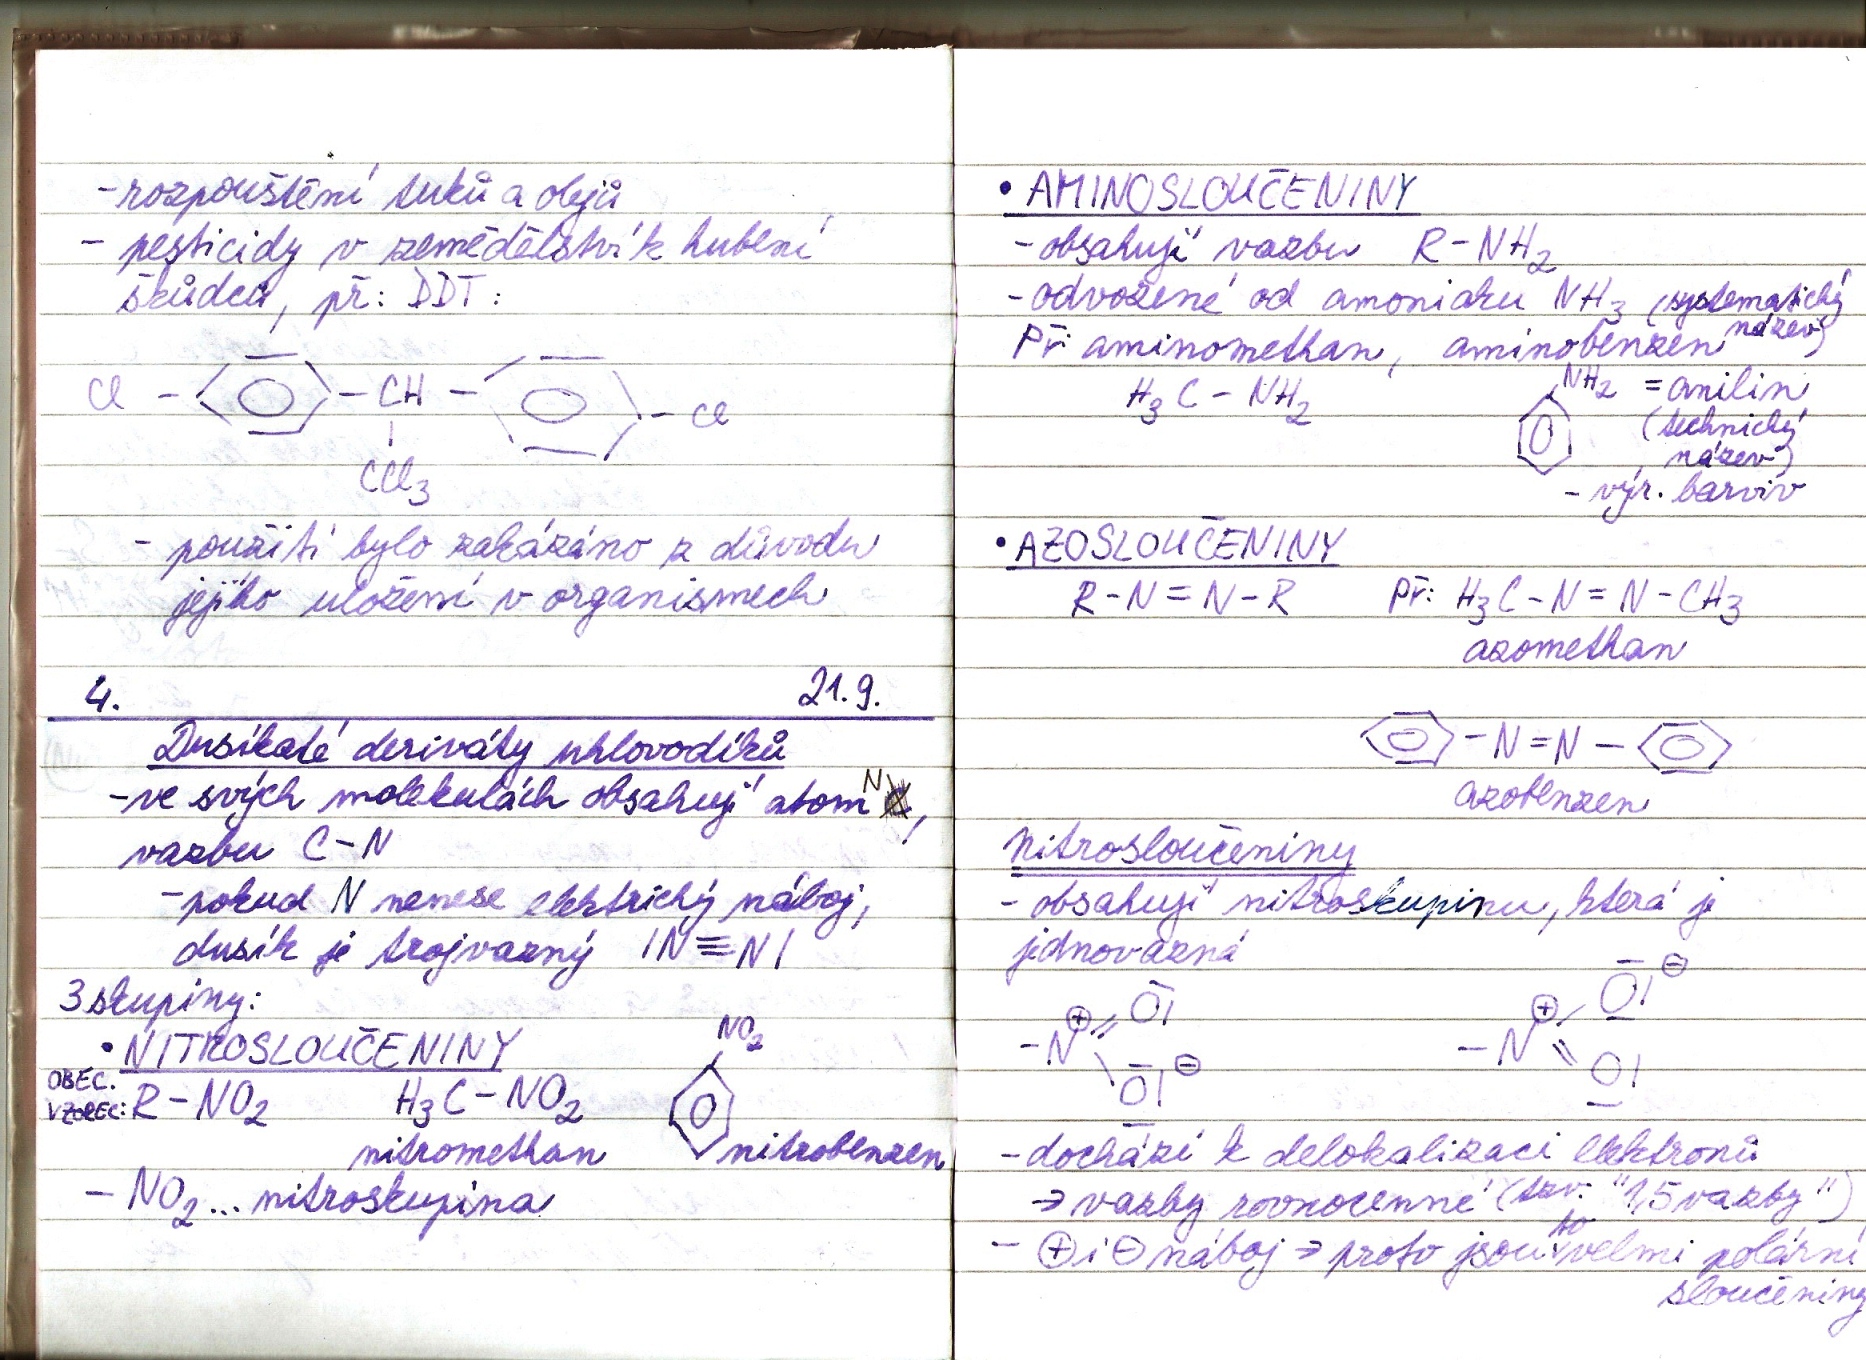 -rozpouštění tuků a olejů
- pesticidy v zemědělství k hubení
škůdců, př: DDT:
Cl - - CH - - Cl
CCl3
- použití bylo zakázáno z důvodu
jejího uložení v organismech
4. 21.9.
Dusíkaté deriváty uhlovodíků
-ve svých molekulách obsahují atom N,
vazbu C-N
-pokud N nenese elektrický náboj,
dusík je trojvazný |N≡N|
3 skupiny:
• NITROSLOUČENINY
NO2
OBEC.
VZOREC: R-NO2 H3C-NO2
nitromethan nitrobenzen
- NO2... nitroskupina
• AMINOSLOUČENINY
-obsahují vazbu R-NH2
-odvozené od amoniaku NH3 (systematický
název)
Př: aminomethan, aminobenzen
H3C-NH2 NH2 = anilin
(technický
název)
- výr. barviv
• AZOSLOUČENINY
R-N=N-R Př: H3C-N=N-CH3
azomethan
-N=N-
azobenzen
Nitrosloučeniny
- obsahují nitroskupinu, která je
jednovazná
-N⊕ O| O|⊖ -N⊕ O|⊖ O|
-dochází k delokalizaci elektronů
→ vazby rovnocenné (tzv. "1,5 vazby")
- ⊕ i ⊖ náboj → proto jsou to velmi polární
sloučeniny